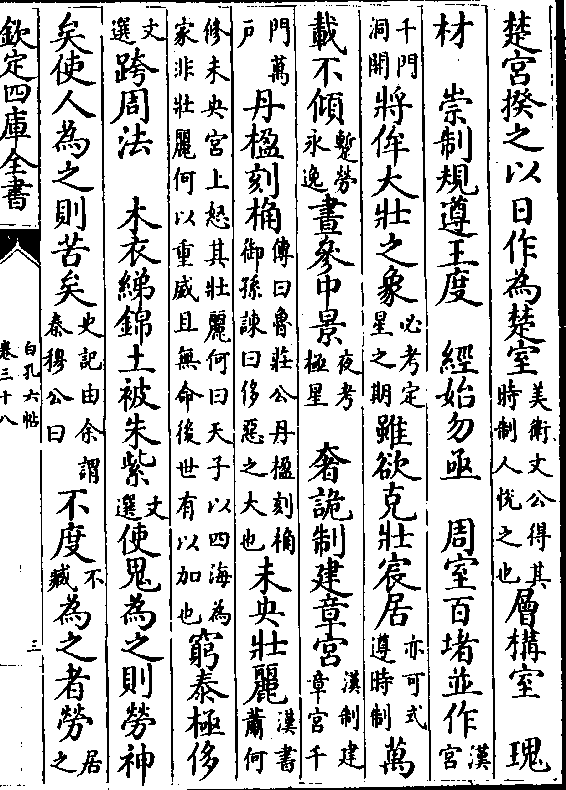 楚宮揆之以日作為楚室美衛文公得其時制人恱之也層構室 瑰
材 崇制規遵王度 經始勿亟 周室百堵並作漢宮
千門洞開將侔大壯之象必考定星之期雖欲克壯宸居亦可式遵時制萬
載不傾蹔勞永逸晝參中景夜考極星 奢詭制建章宮漢制建章宮千
門萬戶丹楹刻桷傳曰魯莊公丹楹刻桷御孫諫曰侈惡之大也未央壯麗漢書蕭何
修未央宮上怒其壯麗何曰天子以四海為家非壯麗何以重威且無命後世有以加也窮泰極侈
文選跨周法 木衣綈錦土被朱紫文選使鬼為之則勞神
矣使人為之則苦矣史記由余謂秦穆公曰不度不臧為之者勞居之
欽定四庫全書
白孔六帖
卷三十八
三